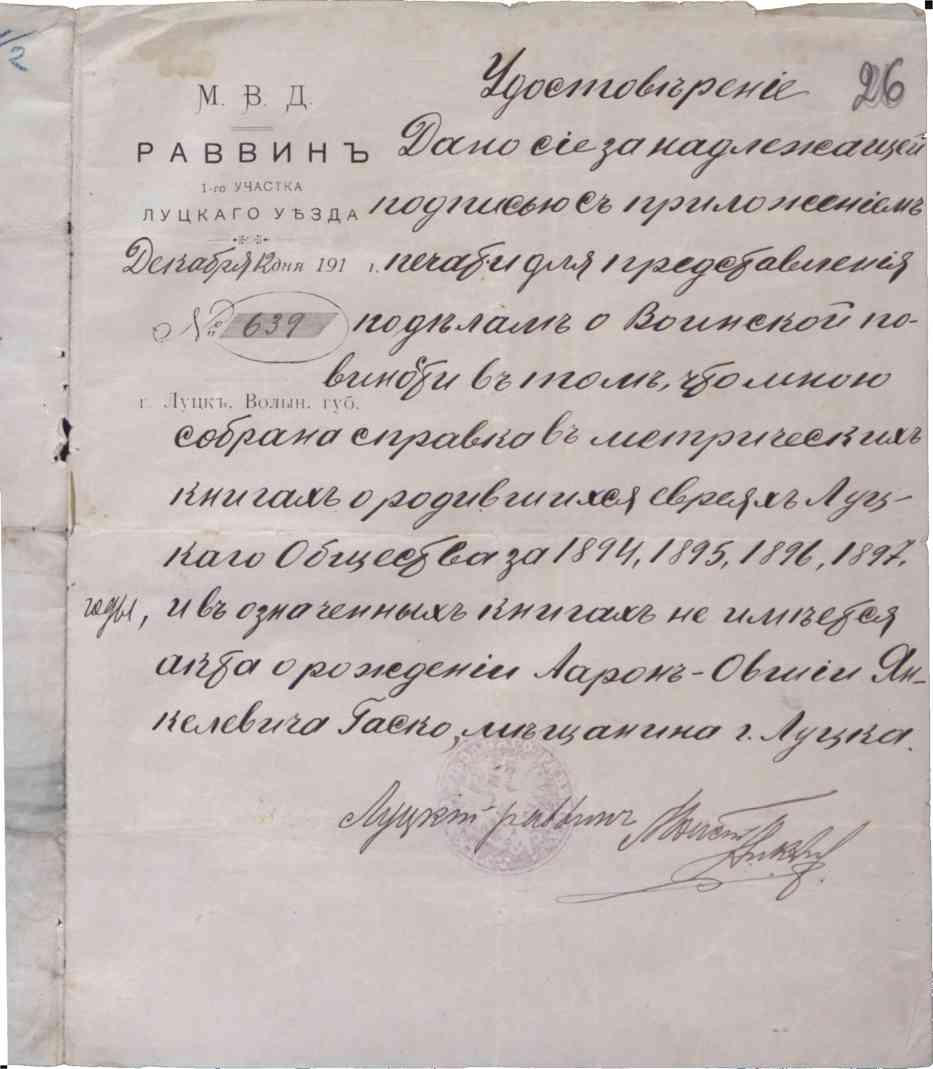 1/2
26
Удостовѣреніе
М. В. Д.
РАВВИНЪ
1-го УЧАСТКА
ЛУЦКАГО УѢЗДА
Декабря 12 дня 191 г.
№ 639
г. Луцкъ, Волын. губ.
Дано сіе за надлежащей
подписью съ приложеніемъ
печати для представленія
по дѣламъ о Воинской по-
виности въ томъ, что мною
собрана справка въ метрическихъ
книгахъ о родившихся евреяхъ Луц-
каго Общества за 1894, 1895, 1896, 1897.
годы, и въ означенныхъ книгахъ не имѣется
акта о рожденіи Ааронъ-Овшіи Ян-
келевича Гаско, мѣщанина г. Луцка.
Луцкій раввинъ